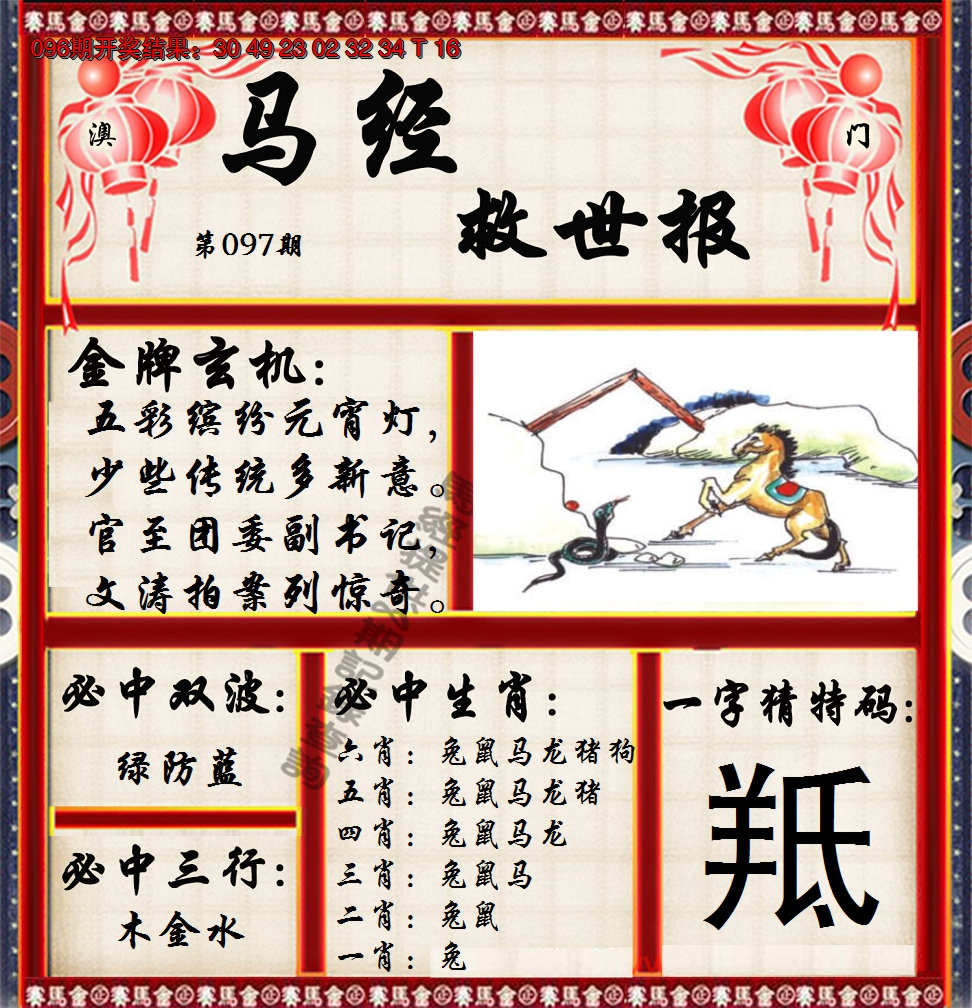 賽馬會
096期开奖结果：30 49 23 02 32 34 T 16
澳
门
马经
救世报
第097期
金牌玄机：
五彩缤纷元宵灯，
少些传统多新意。
官至团委副书记，
文涛拍案列惊奇。
必中双波：
绿防蓝
必中三行：
木金水
必中生肖：
六肖：兔鼠马龙猪狗
五肖：兔鼠马龙猪
四肖：兔鼠马龙
三肖：兔鼠马
二肖：兔鼠
一肖：兔
一字猜特码：
羝